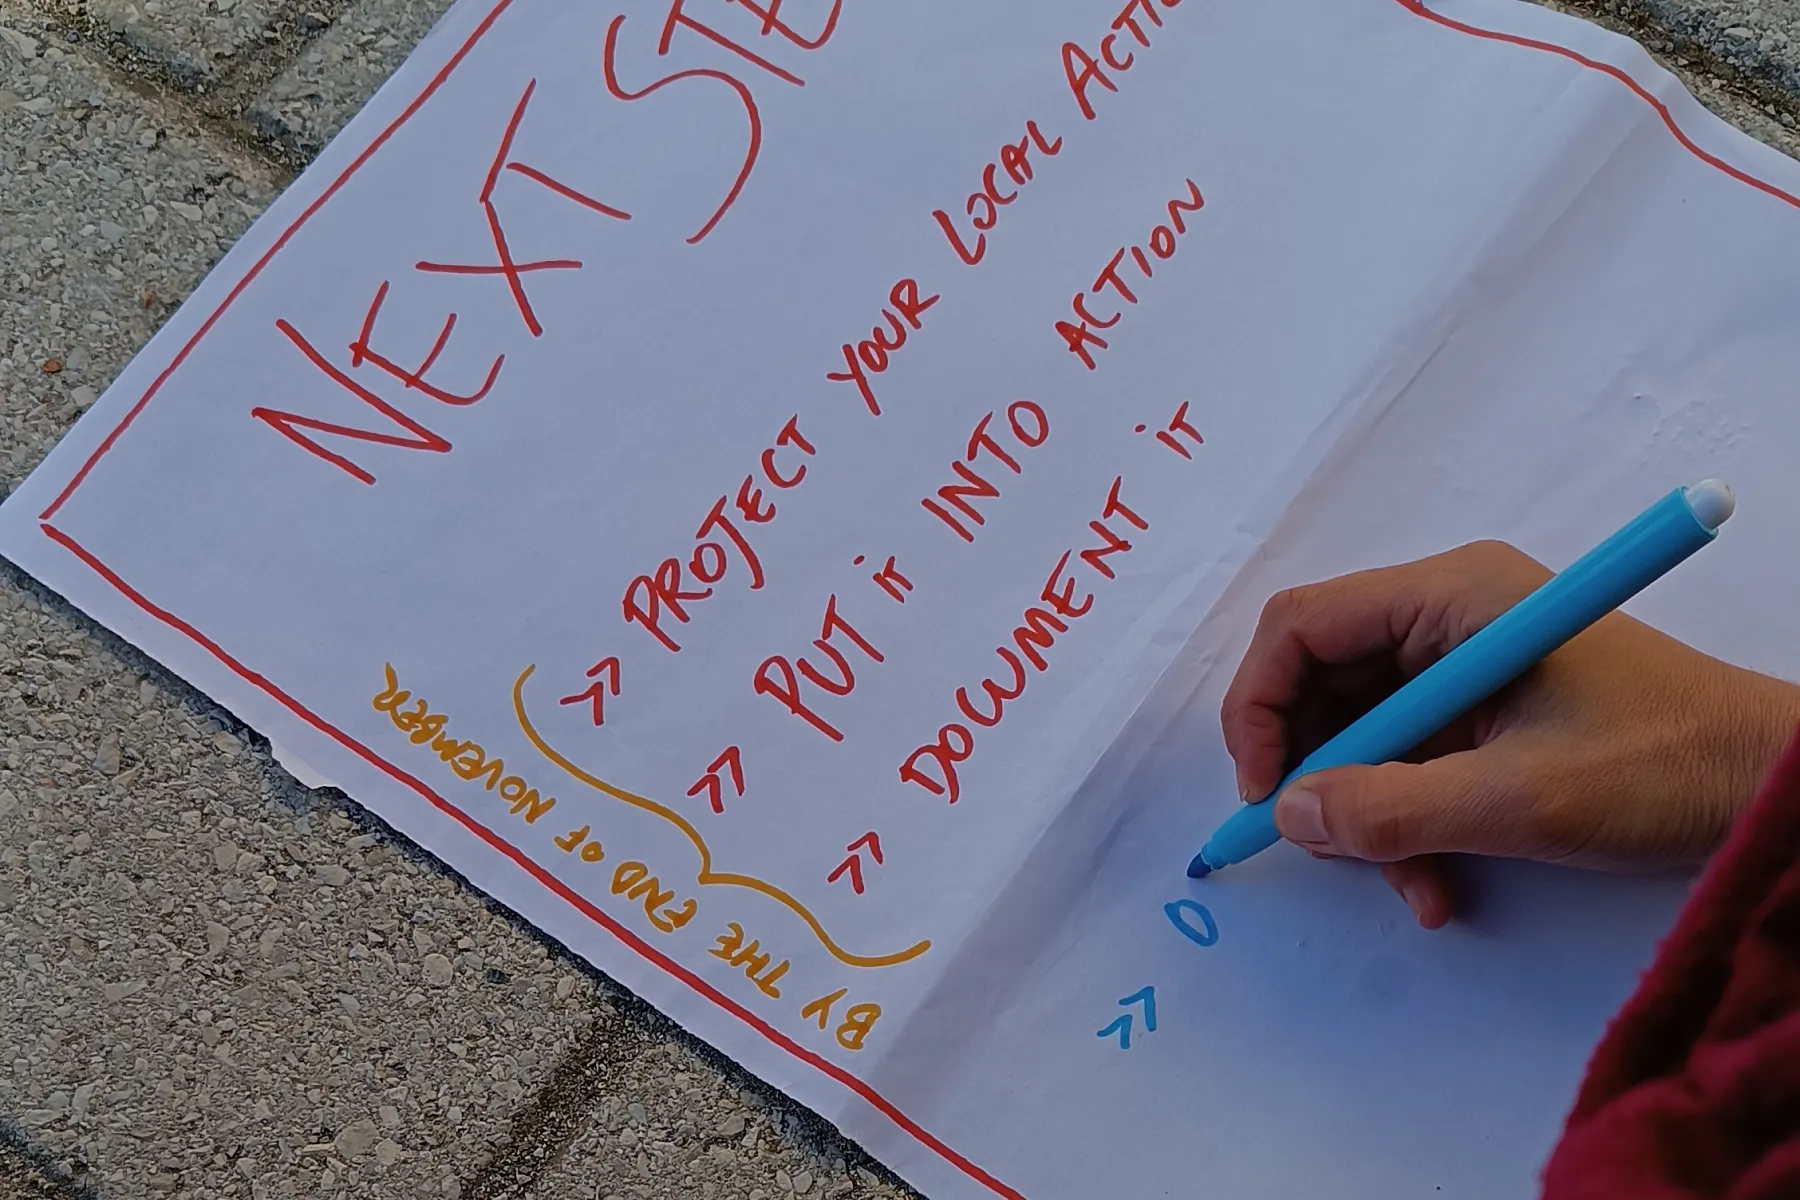 NEXT STE
>> PROJECT YOUR LOCAL ACTIO
>> PUT iT INTO ACTION
>> DOCUMENT iT
BY THE END OF NOVEMBER
>> O